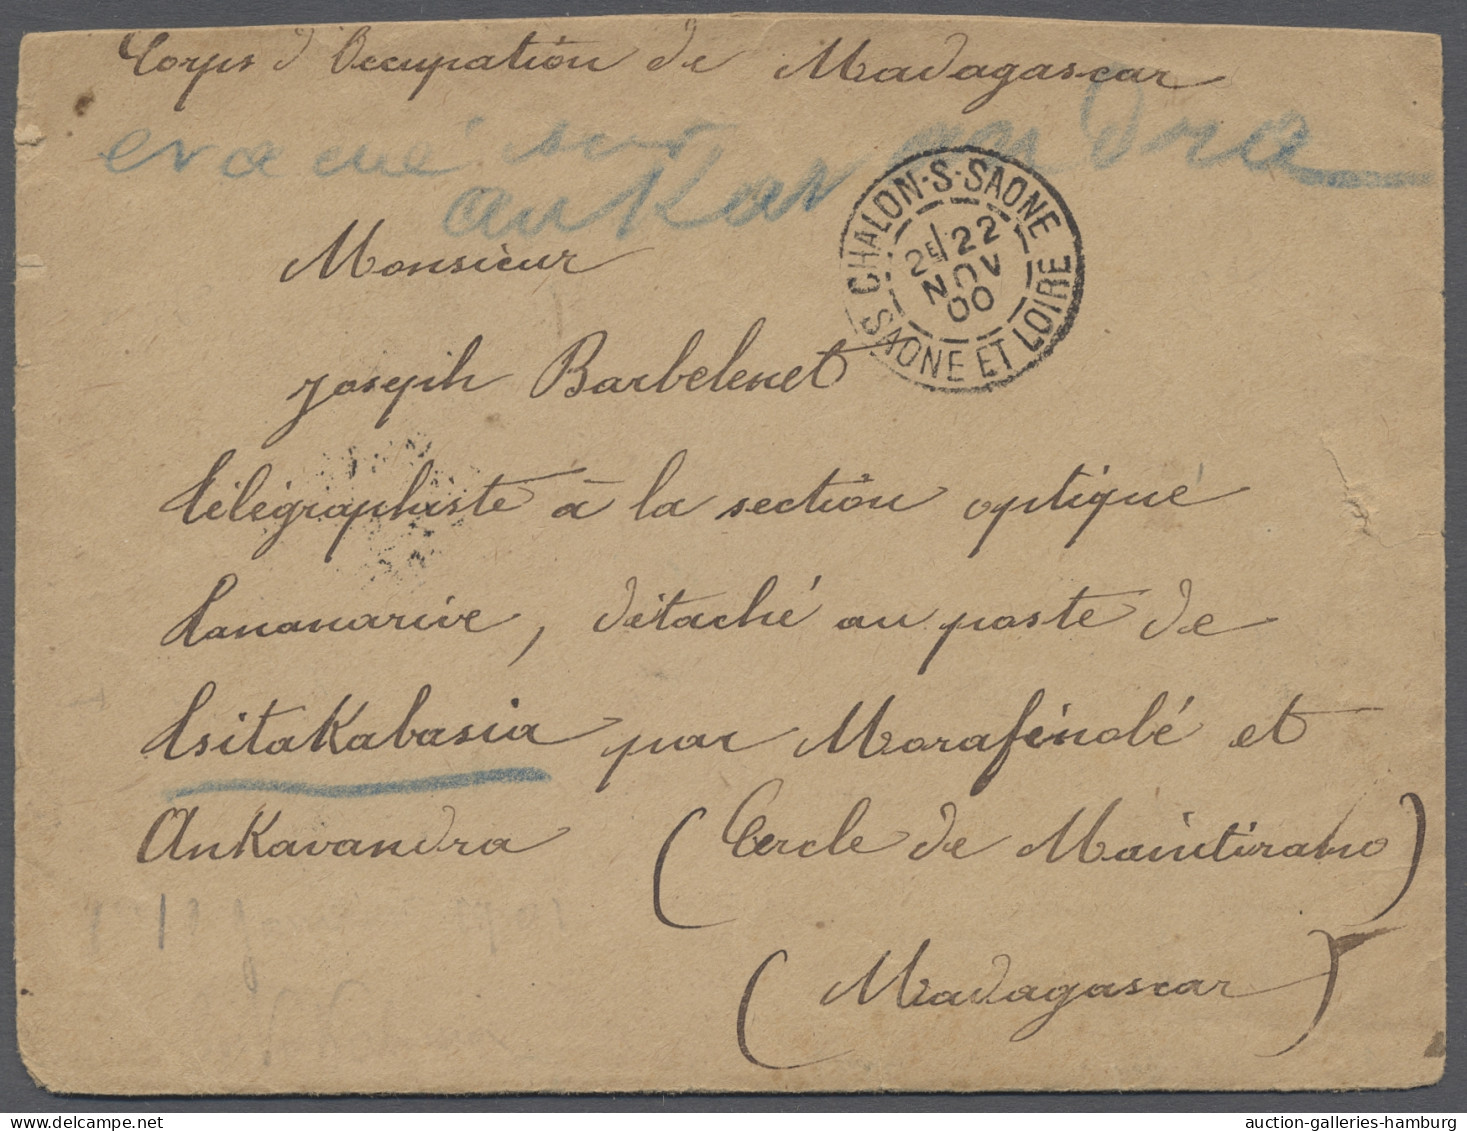 Corps d'Occupation de Madagascar
evacué sur
ankavandra
Monsieur
CHALON-S-SAONE
2E/22
NOV
00
SAONE ET LOIRE
Joseph Barbelenet
Télégraphiste à la section optique
Tananarive, détaché au poste de
Tsitakabasia par Morafenobé et
Ankavandra (Cercle de Maintirano)
(Madagascar)
auction-galleries-hamburg